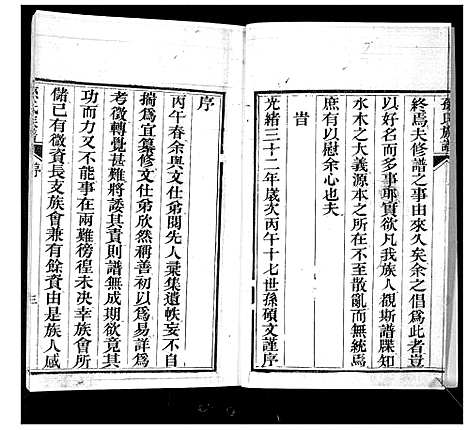 孫氏族譜
終焉夫修譜之事由來久矣余之倡爲此者豈
以好名而多事耶實欲凡我族人覩斯譜牒知
水木之大義源本之所在不至散亂而無統焉
庶有以慰余心也夫
旹
光緒三十二年歲次丙午十七世孫碩文謹序
序
丙午春余與文仕弟閱先人彙集遺帙妄不自
揣爲宜纂修文仕弟欣然稱善初以爲易詳爲
考徵轉覺甚難將諉其責則譜無成期欲竟其
功而力又不能事在兩難徬徨未決幸族會所
儲已有微資長支族會兼有餘資由是族人咸
孫氏族譜
序
三